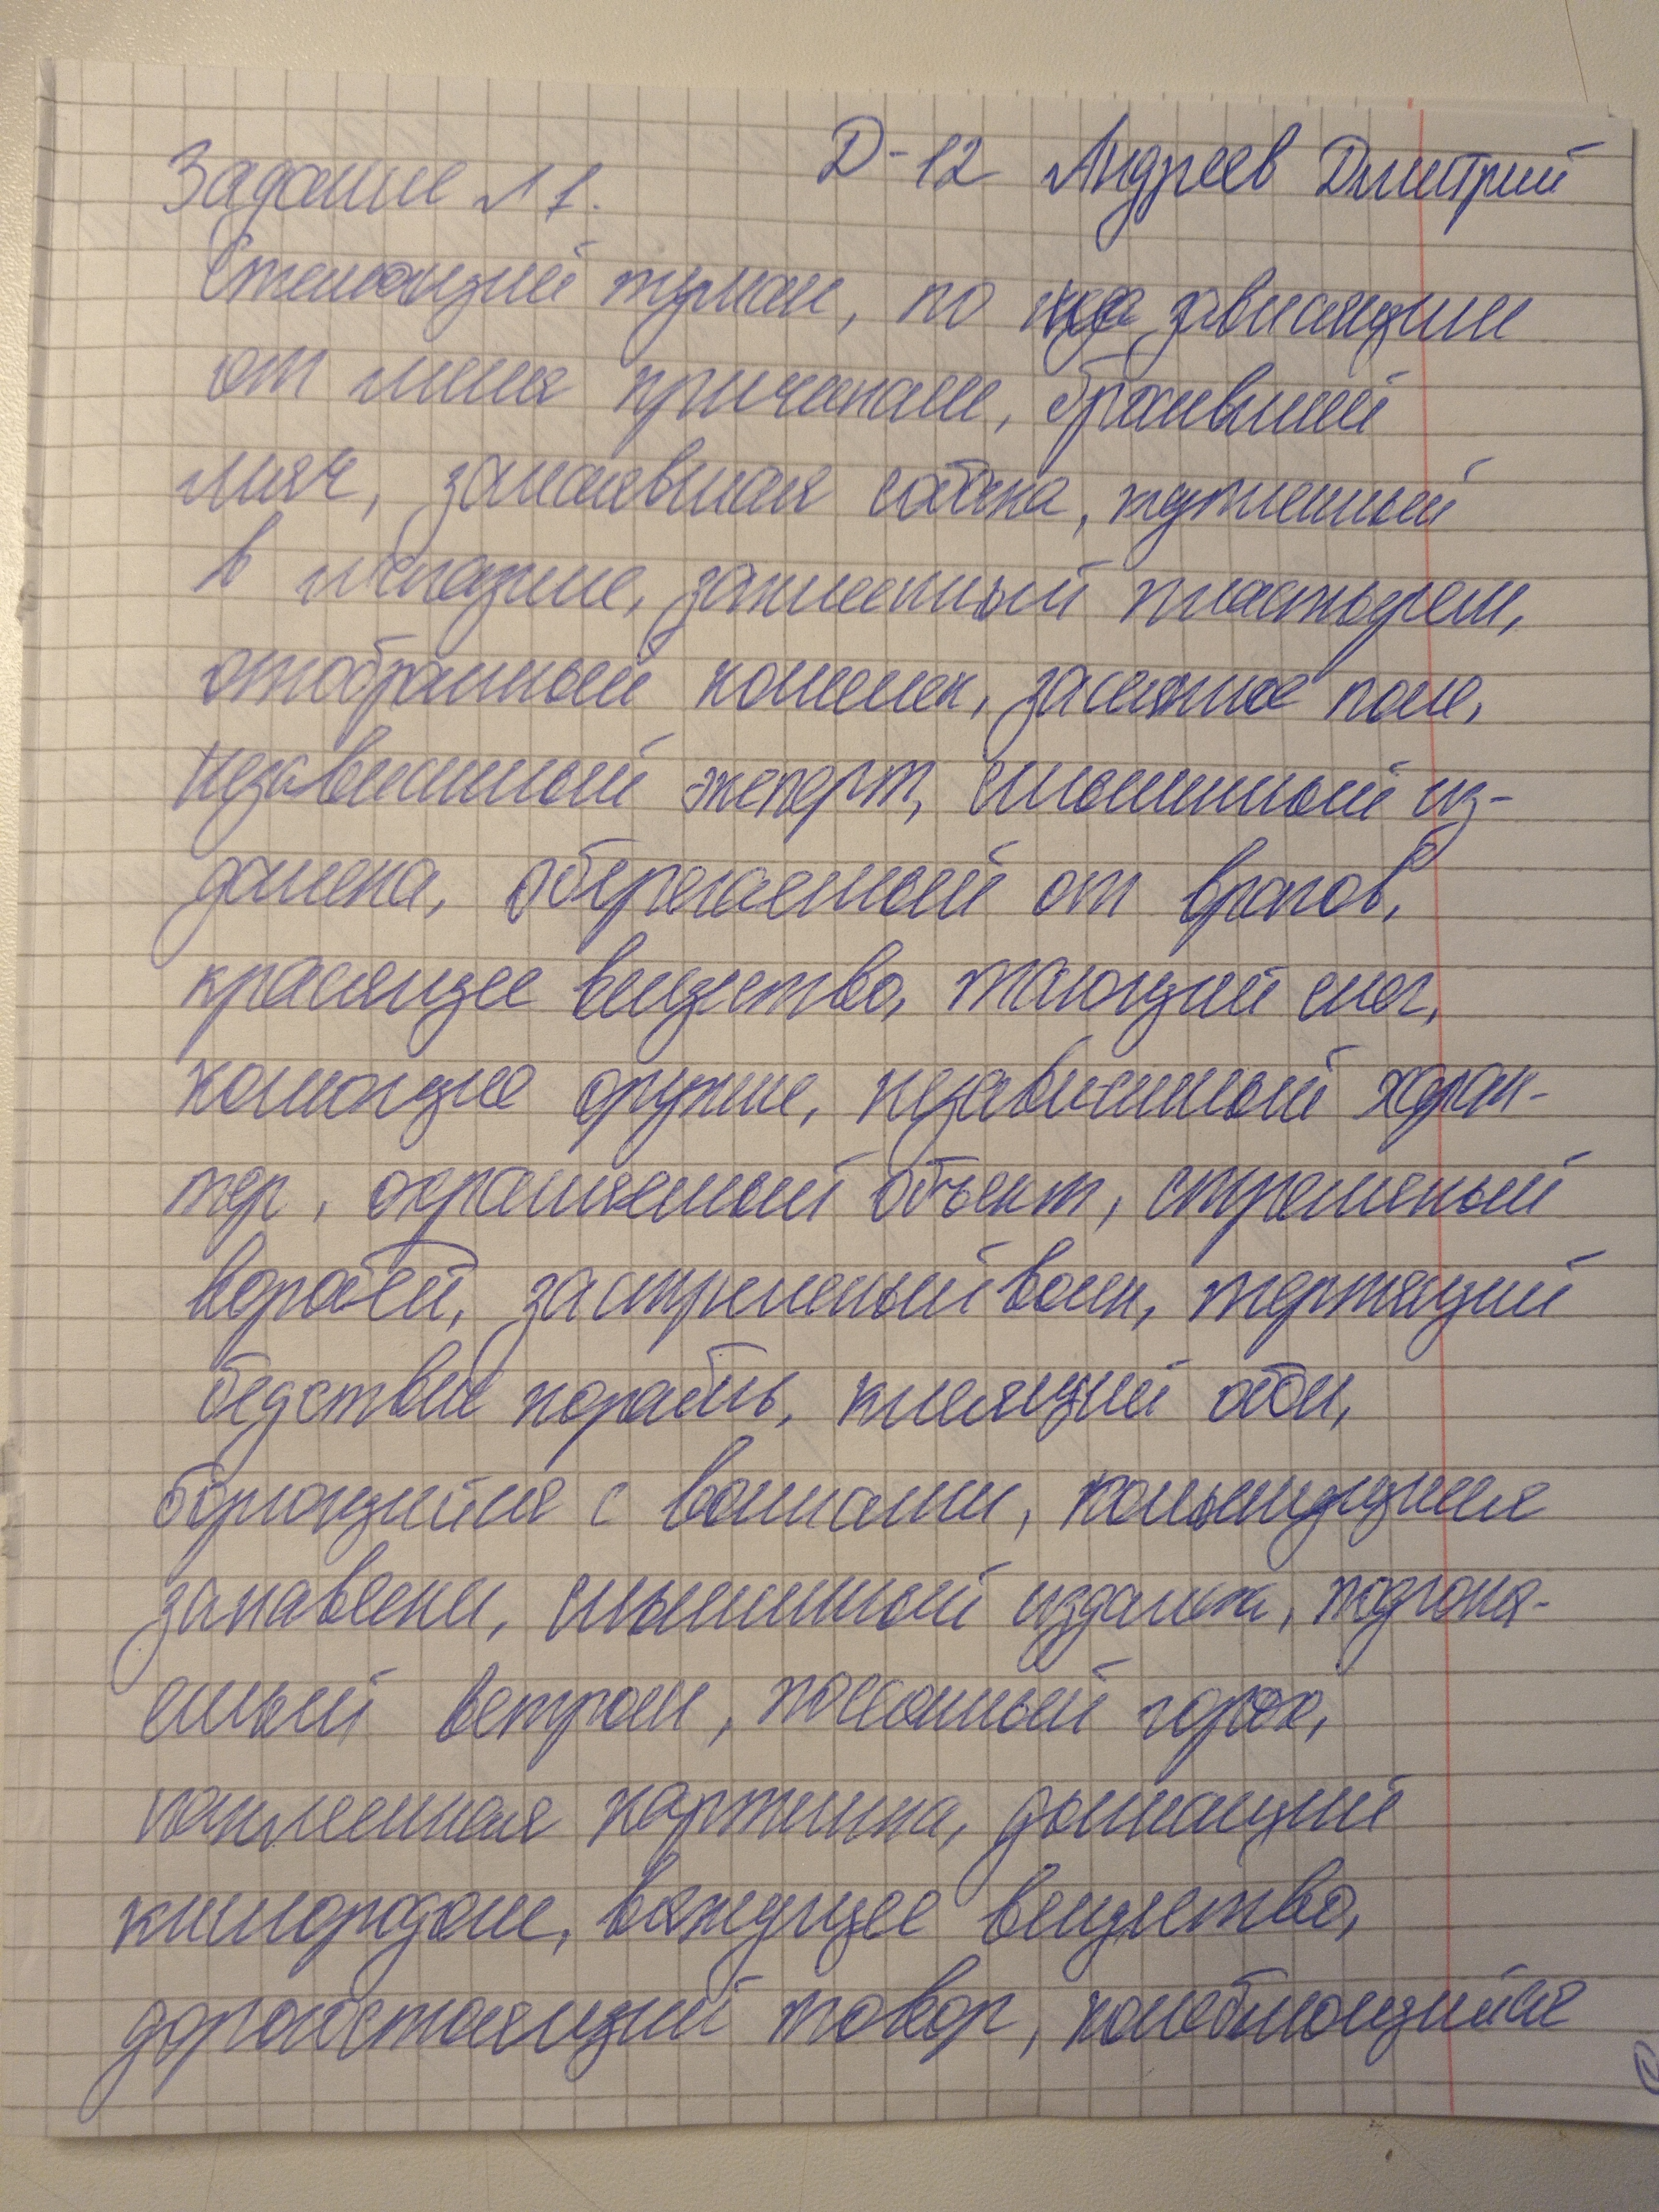 Задание №1. Д-12 Андреев Дмитрий
Стелющий туман, по не зависящим
от меня причинам, бросивший
мяч, залаявшая собака, купленный
в магазине, заклеенный пластырем,
отобранный кошелек, засеянное поле,
независимый эксперт, слышимый из-
далека, оберегаемый от врагов,
красящее вещество, тающий снег,
колющие оружие, независимый харак-
тер, охраняемый объект, стреляный
воробей, застреленый волк, терпящий
бедствие корабль, клеящий обои,
борющийся с волнами, колышущиеся
занавески, слышимый издалека, подгоня-
емый ветром, покинутый город,
наклеенная картинка, дышащий
кислородом, вяжущее вещество,
дорогостоящий товар, колеблющийся